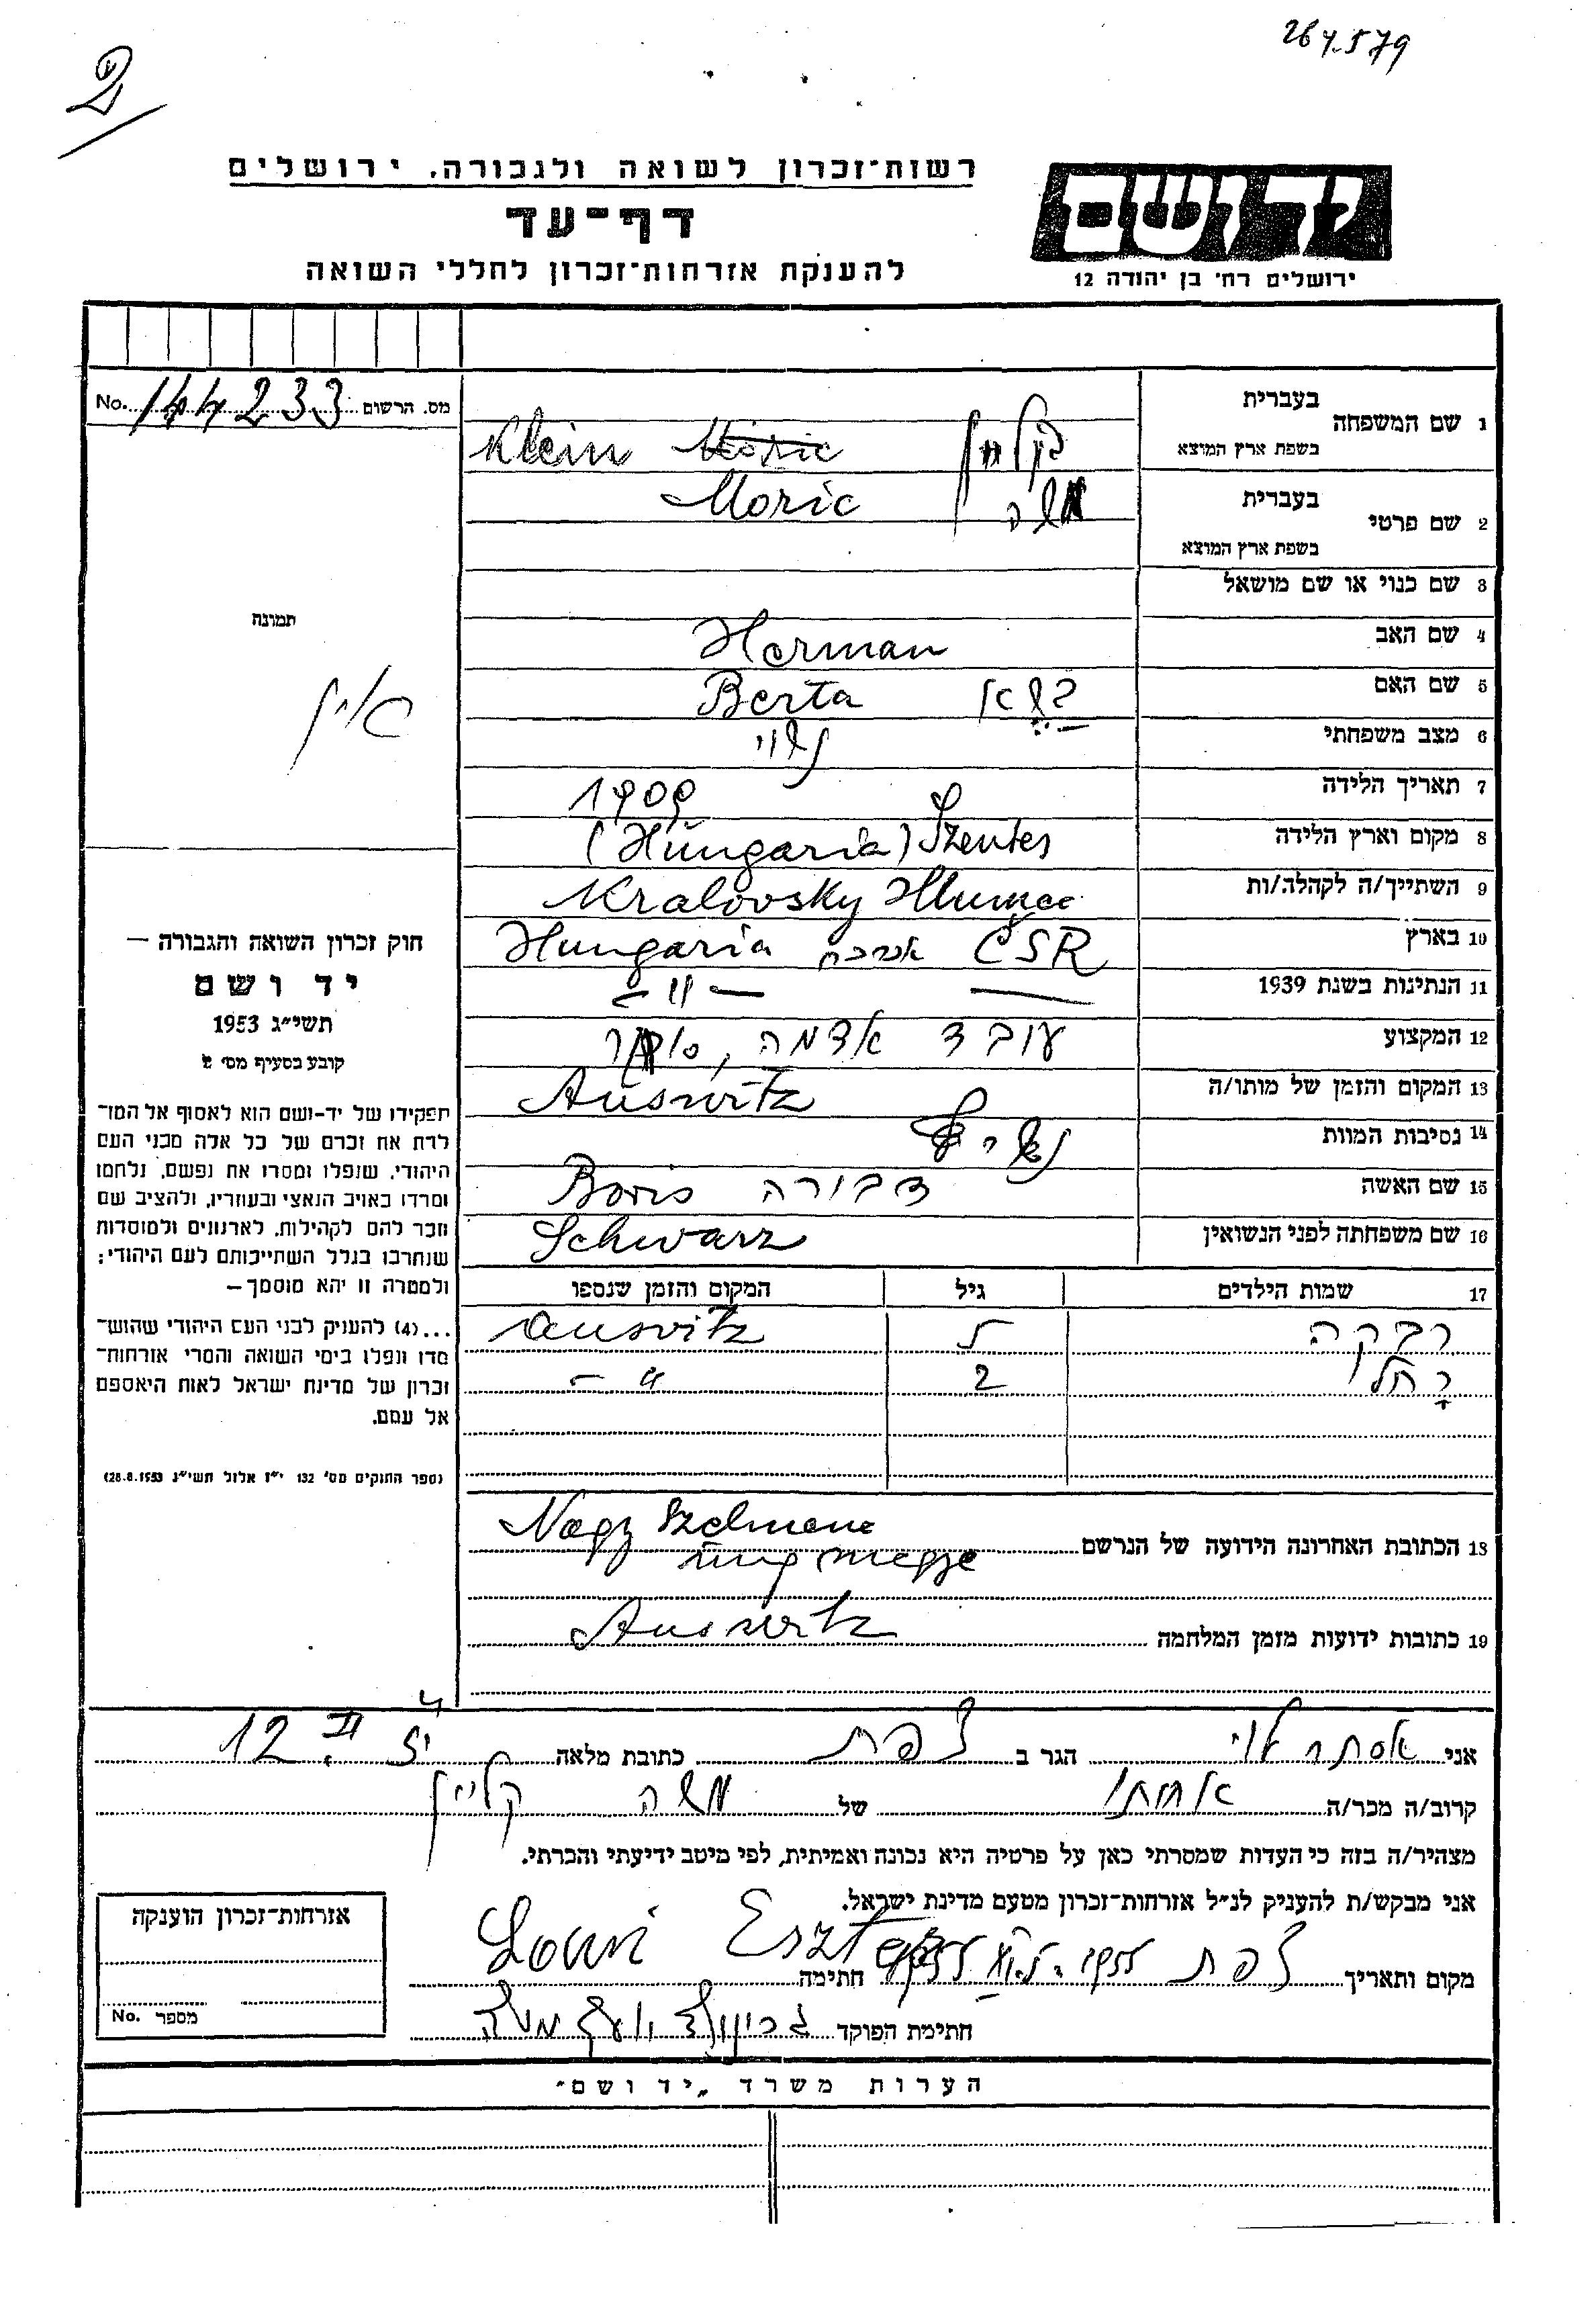 264579
2
רשות־זכרון לשואה ולגבורה, ירושלים
יד ושם
דף־עד
להענקת אזרחות־זכרון לחללי השואה
ירושלים רח׳ בן יהודה 12
מס. הרשום No. 144233
1 שם המשפחה בעברית
בשפת ארץ המוצא
קליין Klein
2 שם פרטי בעברית
בשפת ארץ המוצא
משה Moric
3 שם כנוי או שם מושאל
4 שם האב Herman
5 שם האם Berta
6 מצב משפחתי נשוי
7 תאריך הלידה 1909
8 מקום וארץ הלידה Szentes (Hungaria)
9 השתייך/ה לקהלה/ות Kralovsky Hlumec
10 בארץ CSR Hungaria
11 הנתינות בשנת 1939 — " —
12 המקצוע עובד אדמה, סוחר
13 המקום והזמן של מותו/ה Auswitz
14 נסיבות המוות
15 שם האשה דבורה Boris
16 שם משפחתה לפני הנשואין Schwarz
17 שמות הילדים גיל המקום והזמן שנספו
רבקה 5 Auswitz
רחל 2 — " —
18 הכתובת האחרונה הידועה של הנרשם Nagy Szelmenc
Ung megye
19 כתובות ידועות מזמן המלחמה Auswitz
תמונה
אין
חוק זכרון השואה והגבורה —
יד ושם
תשי״ג 1953
קובע בסעיף מס׳ 2
תפקידו של יד־ושם הוא לאסוף אל המו־
לדת את זכרם של כל אלה מבני העם
היהודי, שנפלו ומסרו את נפשם, נלחמו
ומרדו באויב הנאצי ובעוזריו, ולהציב שם
וזכר להם לקהילות, לארגונים ולמוסדות
שנחרבו בגלל השתייכותם לעם היהודי;
ולמטרה זו יהא מוסמך —
...(4) להעניק לבני העם היהודי שהוש־
מדו ונפלו בימי השואה והמרי אזרחות־
זכרון של מדינת ישראל לאות היאספם
אל עמם.
(ספר החוקים מס׳ 132 י״ז אלול תשי״ג 28.8.1953)
אני אסתר לוי הגר ב צפת כתובת מלאה 12
קרוב/ה מכר/ה אחותו של משה קליין
מצהיר/ה בזה כי העדות שמסרתי כאן על פרטיה היא נכונה ואמיתית, לפי מיטב ידיעתי והכרתי.
אני מבקש/ת להעניק לנ״ל אזרחות־זכרון מטעם מדינת ישראל.
מקום ותאריך צפת 1955 חתימה Lowi Eszter
חתימת הפוקד
אזרחות־זכרון הוענקה
מספר No.
הערות משרד „יד ושם״